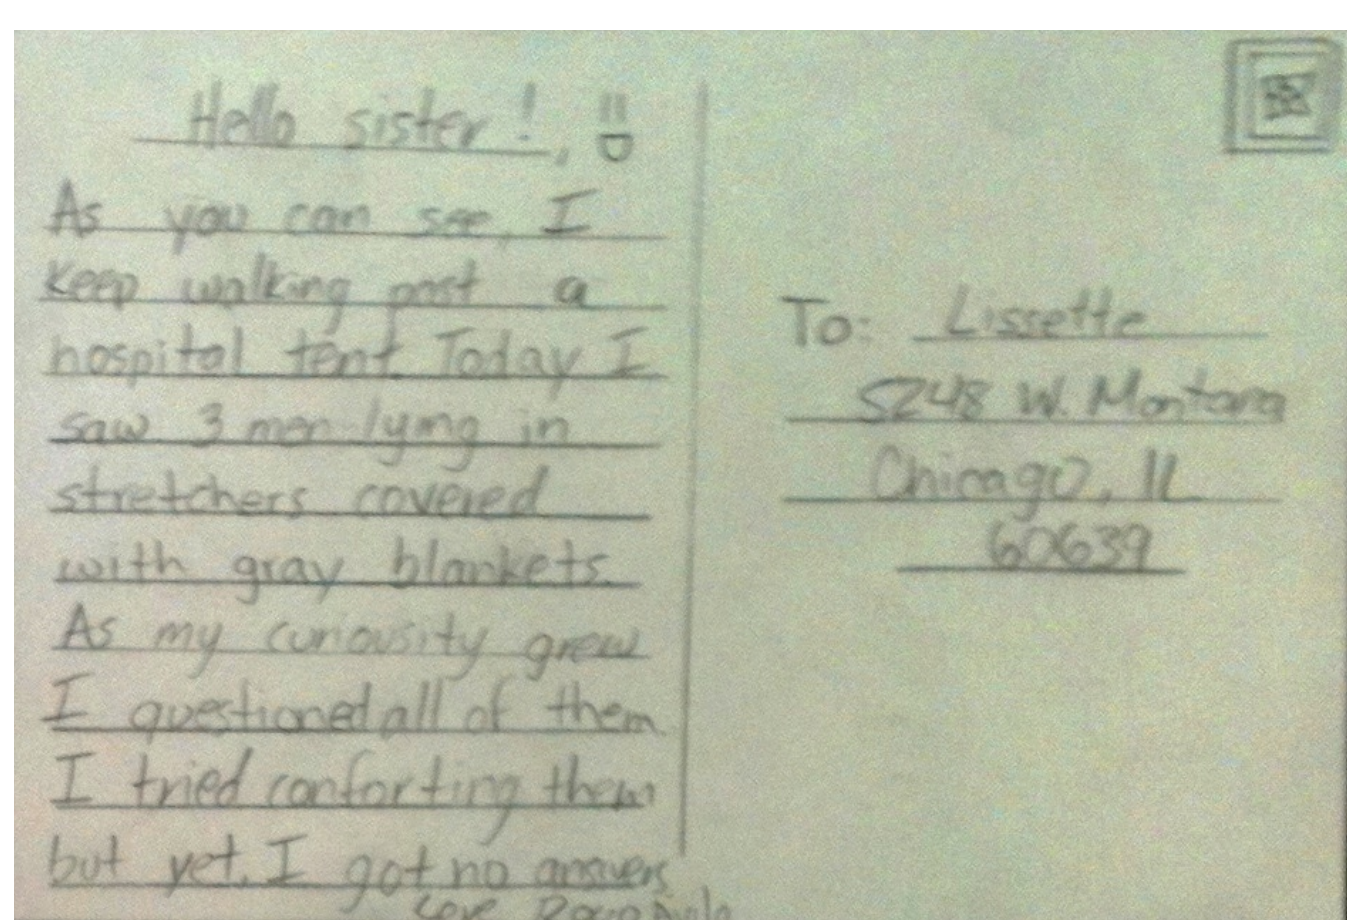 Hello sister!, =D
As you can see, I
keep walking past a
hospital tent. Today I
saw 3 men lying in
stretchers covered
with gray blankets.
As my curiousity grew
I questioned all of them.
I tried conforting them
but yet, I got no answers
Love
To: Lissette
5248 W. Montana
Chicago, IL
60639